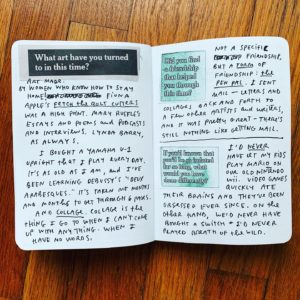 What art have you turned
to in this time?
ART MADE
BY WOMEN WHO KNOW HOW TO STAY
HOME. FIONA
APPLE'S FETCH THE BOLT CUTTERS
WAS A HIGH POINT. MARY RUEFLE'S
ESSAYS AND POEMS AND PODCASTS
AND INTERVIEWS. LYNDA BARRY,
AS ALWAYS.
I BOUGHT A YAMAHA U-1
UPRIGHT THAT I PLAY EVERY DAY.
IT'S AS OLD AS I AM, AND I'VE
BEEN LEARNING DEBUSSY'S "DEUX
ARABESQUES." IT'S TAKEN ME MONTHS
AND MONTHS TO GET THROUGH 6 PAGES.
AND COLLAGE. COLLAGE IS THE
THING I GO TO WHEN I CAN'T COME
UP WITH ANYTHING. WHEN I
HAVE NO WORDS.
Did you find
a friendship
that helped
you through
this time?
NOT A SPECIFIC
FRIENDSHIP,
BUT A FORM OF
FRIENDSHIP: THE
PEN PAL. I SENT
MAIL — LETTERS AND
COLLAGES BACK AND FORTH TO
A FEW OTHER ARTISTS AND WRITERS,
AND IT WAS PRETTY GREAT — THERE'S
STILL NOTHING LIKE GETTING MAIL.
If you'd known that
you'd be isolated
for so long, what
would you have
done differently?
I'D NEVER
HAVE LET MY KIDS
PLAY MARIO ON
OUR OLD NINTENDO
WII. VIDEO GAMES
QUICKLY ATE
THEIR BRAINS AND THEY'VE BEEN
OBSESSED EVER SINCE. ON THE
OTHER HAND, WE'D NEVER HAVE
BOUGHT A SWITCH & I'D NEVER
PLAYED BREATH OF THE WILD.